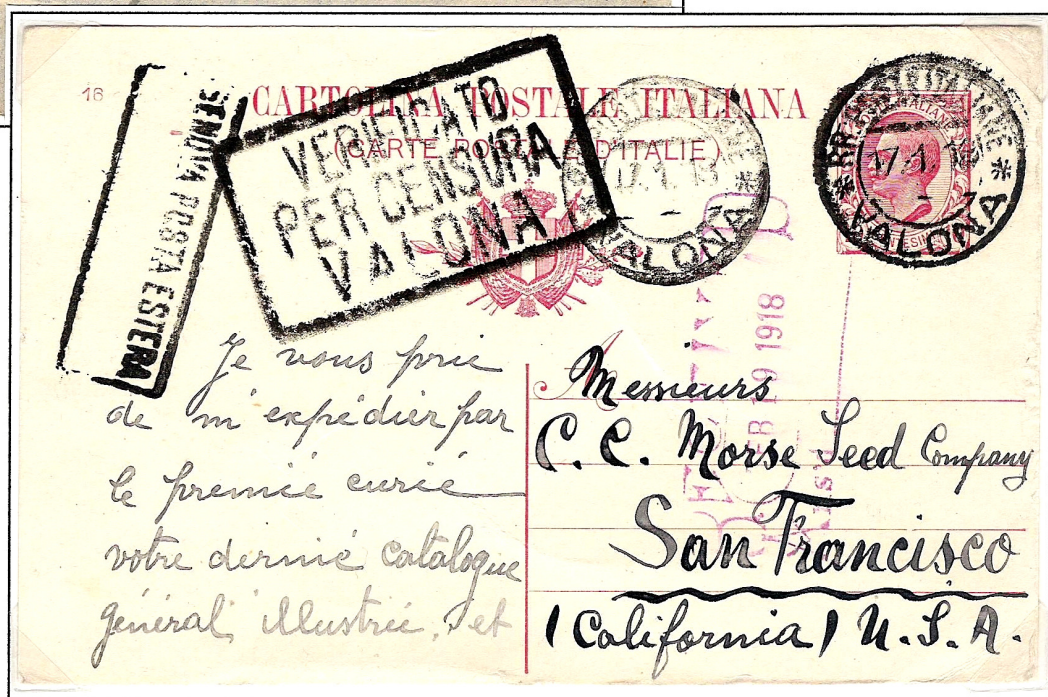 16
CARTOLINA POSTALE ITALIANA
(CARTE POSTALE D'ITALIE)
VERIFICATO
PER CENSURA
VALONA
POSTA ESTERA
17.1.18
VALONA
17.1.18
VALONA
1918
Je vous prie
de m'expédier par
le premié curié
votre dernié catalogue
général, illustrié, et
Messieurs
C. C. Morse Seed Company
San Francisco
(California) U. S. A.